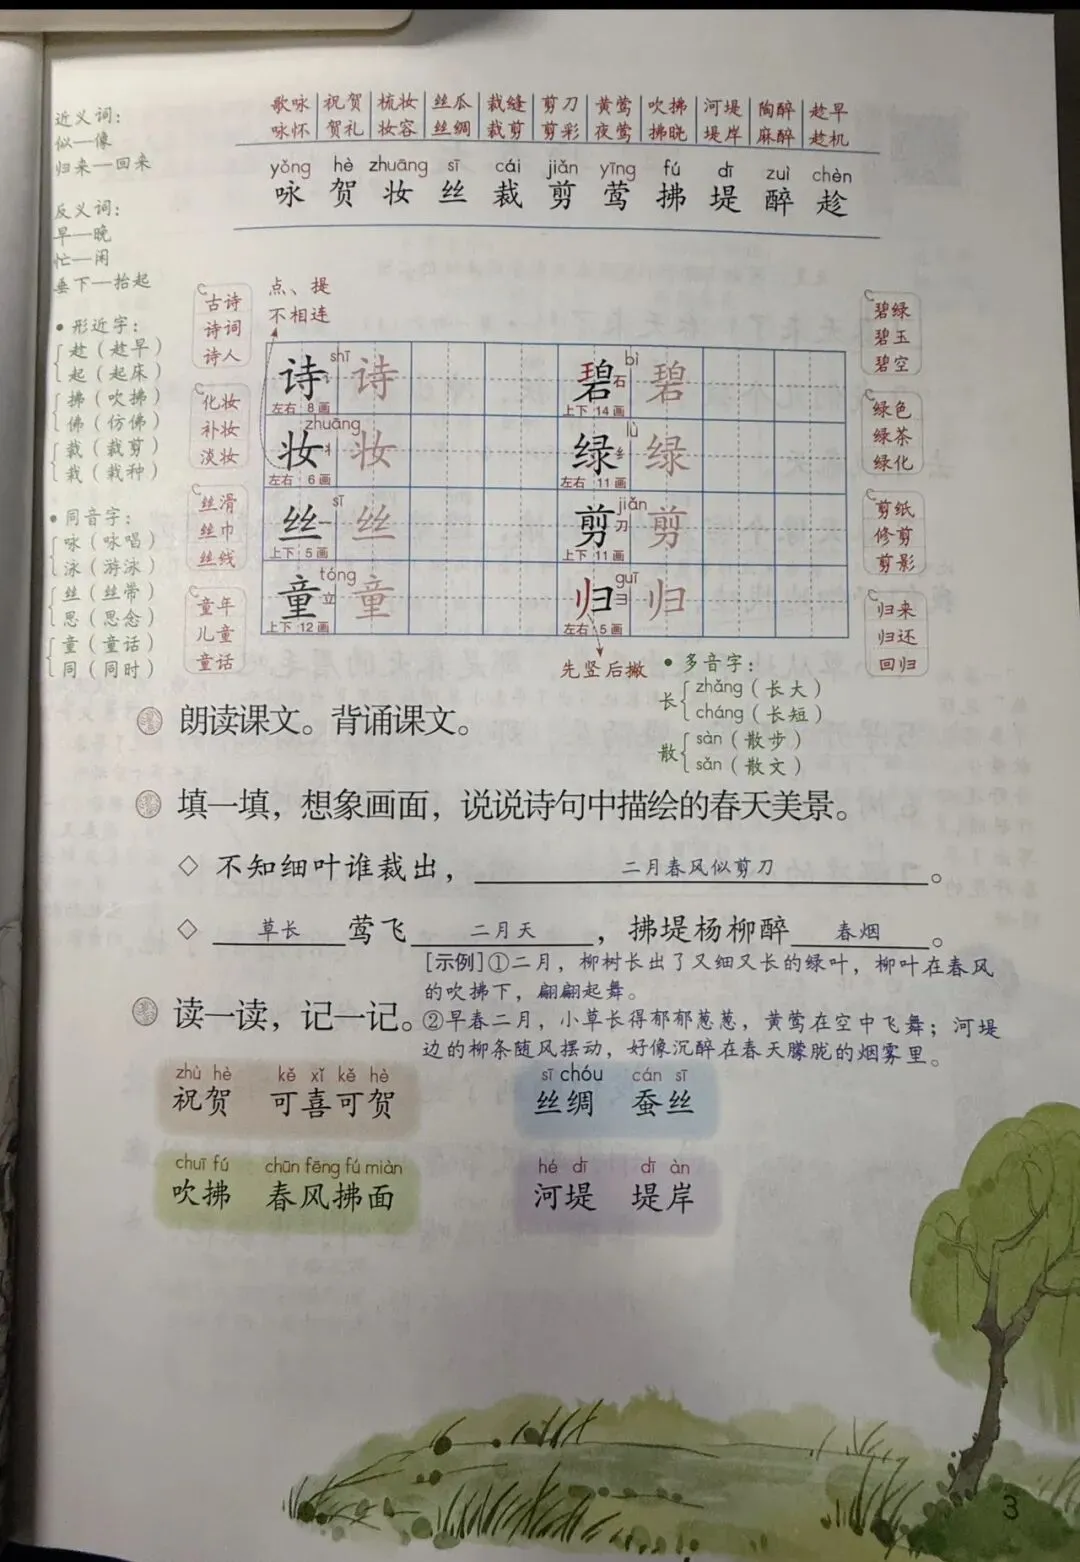 近义词：
似—像
归来—回来
反义词：
早—晚
忙—闲
垂下—抬起
• 形近字：
趁（趁早）
起（起床）
拂（吹拂）
佛（仿佛）
裁（裁剪）
栽（栽种）
• 同音字：
咏（咏唱）
泳（游泳）
丝（丝带）
思（思念）
童（童话）
同（同时）
歌咏 祝贺 梳妆 丝瓜 裁缝 剪刀 黄莺 吹拂 河堤 陶醉 趁早
咏怀 贺礼 妆容 丝绸 裁剪 剪彩 夜莺 拂晓 堤岸 麻醉 趁机
yǒng hè zhuāng sī cái jiǎn yīng fú dī zuì chèn
咏 贺 妆 丝 裁 剪 莺 拂 堤 醉 趁
点、提
不相连
古诗
诗词
诗人
化妆
补妆
淡妆
丝滑
丝巾
丝线
童年
儿童
童话
shī
诗 诗
左右 8画
zhuāng
妆 丬 妆
左右 6画
sī
丝 一 丝
上下 5画
tóng
童 立 童
上下 12画
bì
碧 石 碧
上下 14画
lǜ
绿 纟 绿
左右 11画
jiǎn
剪 刀 剪
上下 11画
guī
归 彐 归
左右 5画
先竖后撇
碧绿
碧玉
碧空
绿色
绿茶
绿化
剪纸
修剪
剪影
归来
归还
回归
• 多音字：
长 zhǎng（长大）
cháng（长短）
散 sàn（散步）
sǎn（散文）
朗读课文。背诵课文。
填一填，想象画面，说说诗句中描绘的春天美景。
◇ 不知细叶谁裁出，二月春风似剪刀。
◇ 草长莺飞二月天，拂堤杨柳醉春烟。
[示例]①二月，柳树长出了又细又长的绿叶，柳叶在春风
的吹拂下，翩翩起舞。
②早春二月，小草长得郁郁葱葱，黄莺在空中飞舞；河堤
边的柳条随风摆动，好像沉醉在春天朦胧的烟雾里。
读一读，记一记。
zhù hè kě xǐ kě hè
祝贺 可喜可贺
sī chóu cán sī
丝绸 蚕丝
chuī fú chūn fēng fú miàn
吹拂 春风拂面
hé dī dī àn
河堤 堤岸
3